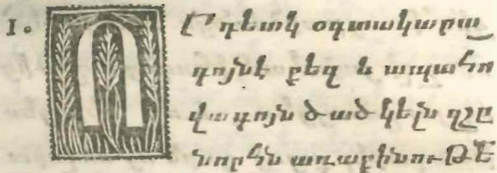 1. ՈՐդեակ օգտակարա
գոյնէ քեզ և ապահո
վագոյն ծածկելն զշը
նորհն առաքինուԹԵ